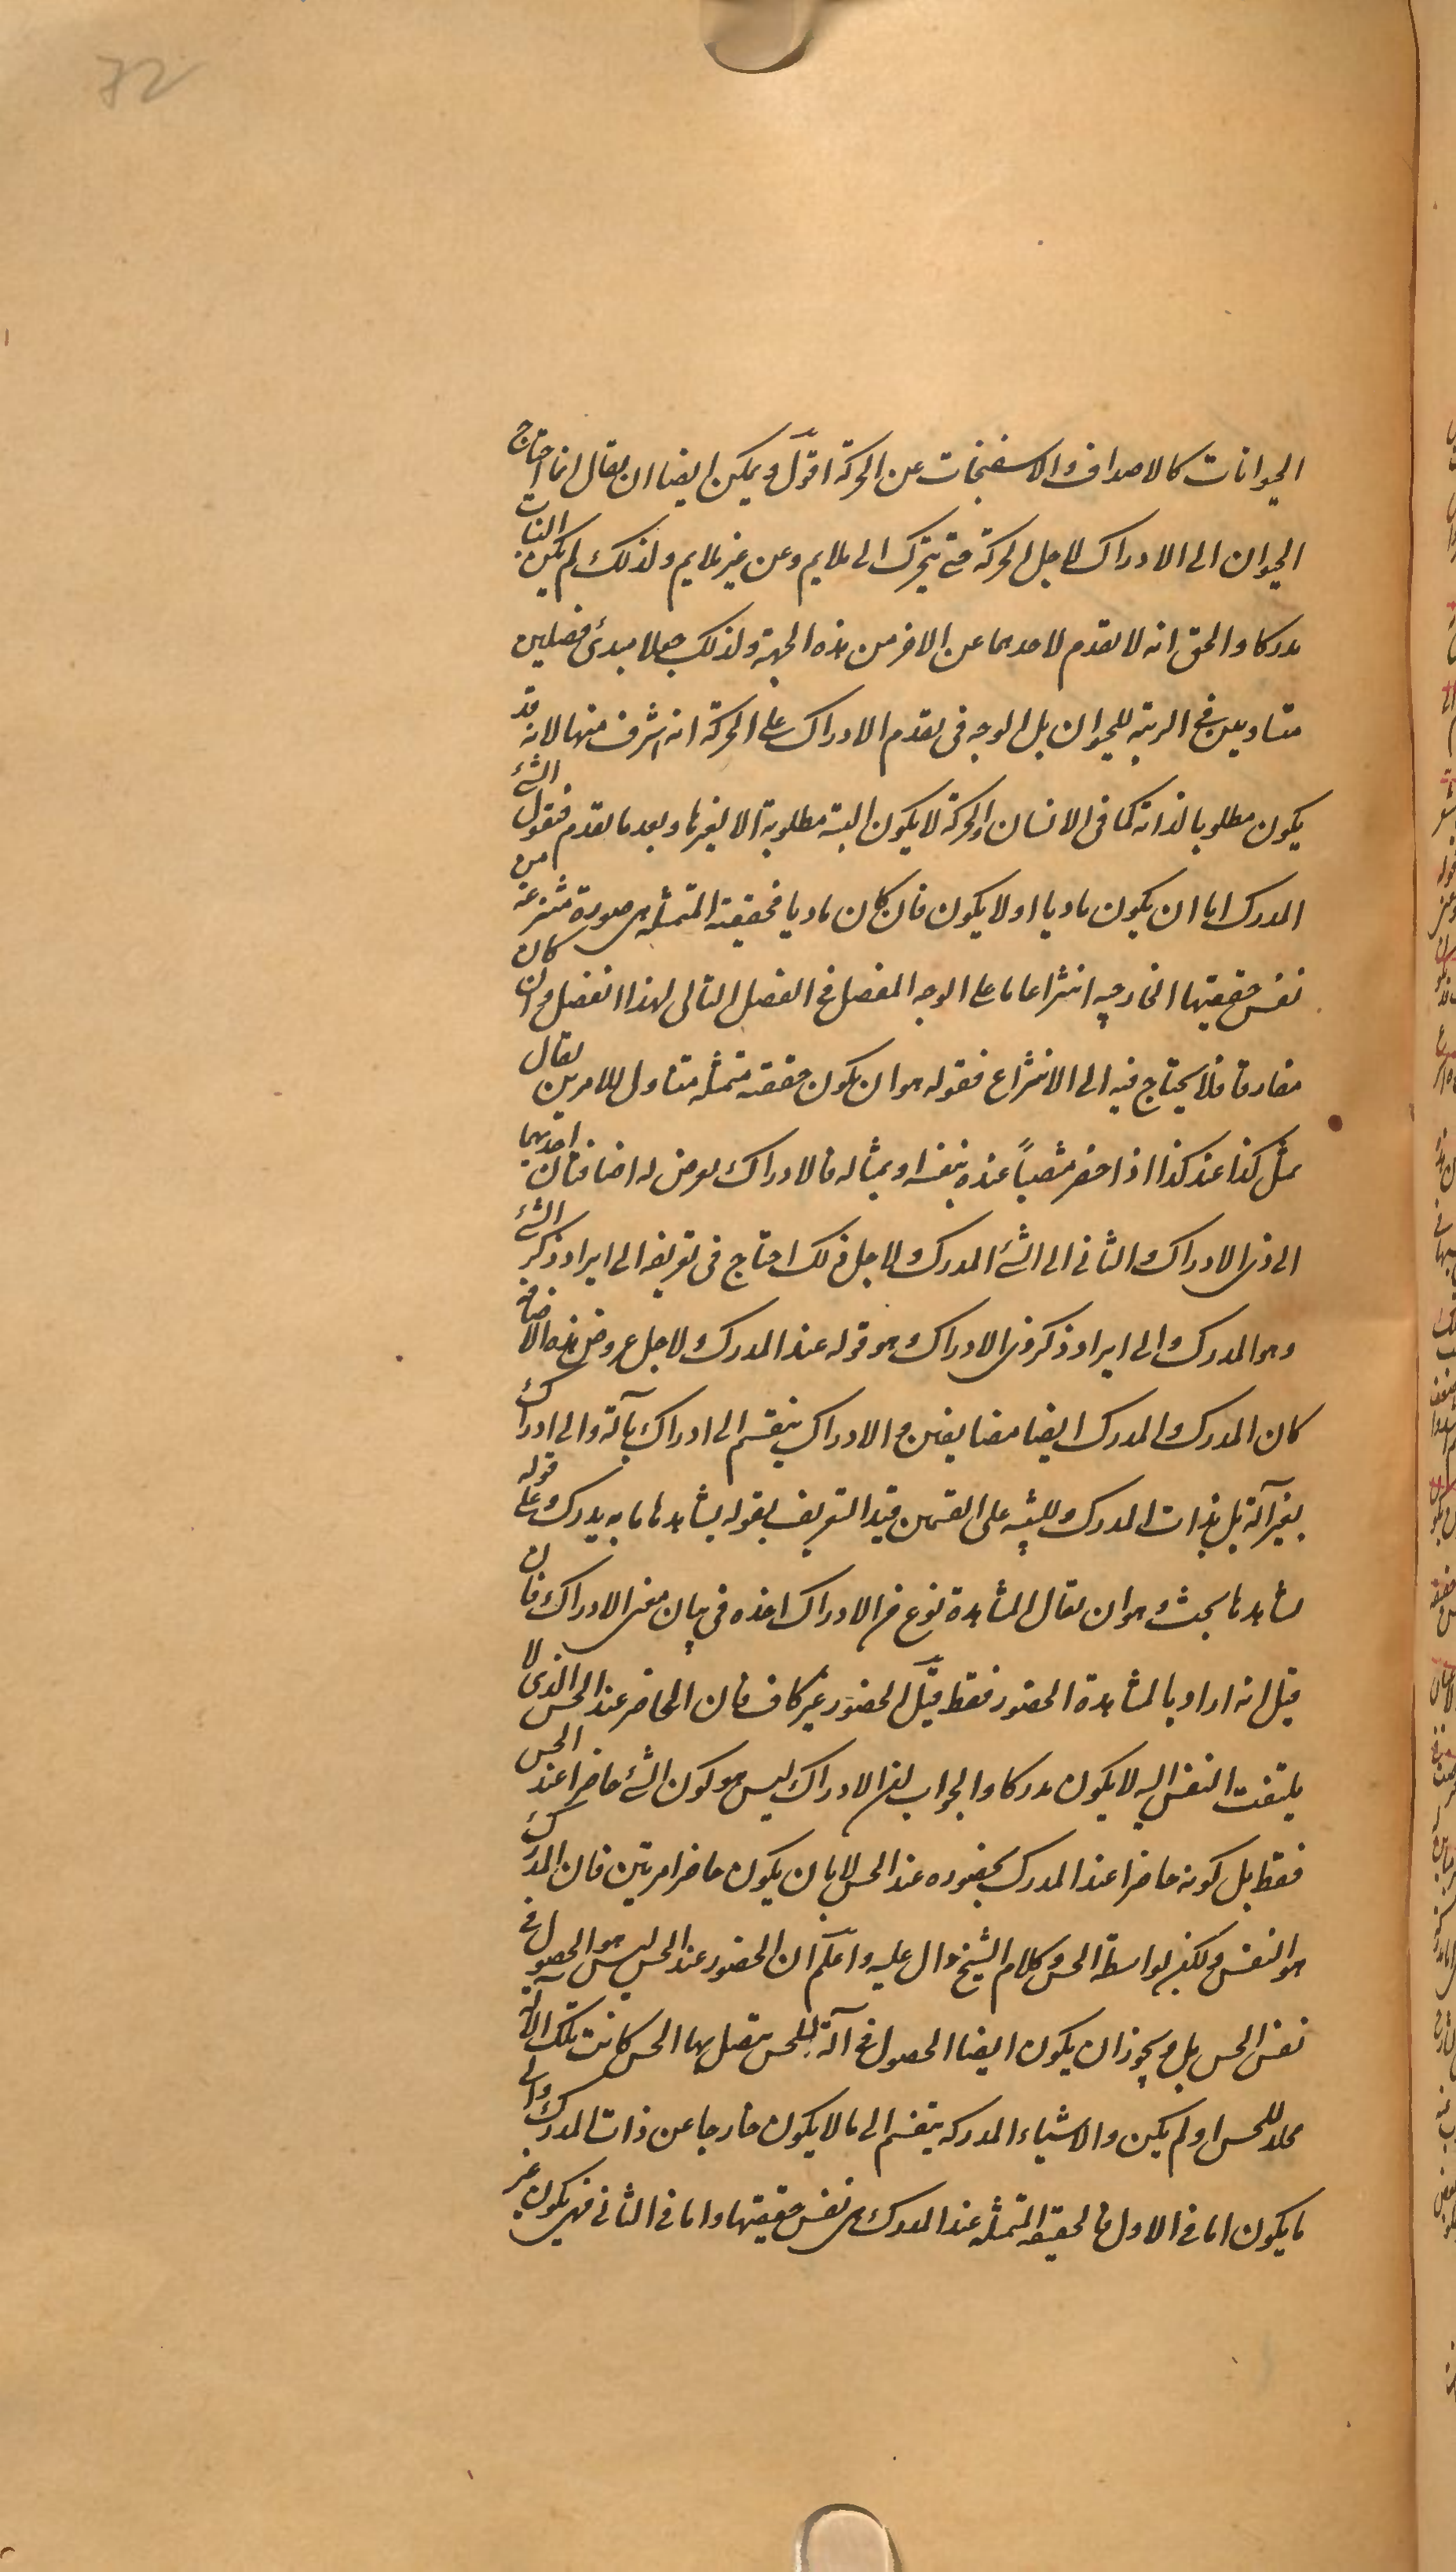 72
الحيوانات كالاصداف والاسفنجات عن الحركة اقول ويمكن ايضا ان يقال انما احتاج
الحيوان الى الادراك لاجل الحركة حتى يتحرك الى ملايم وعن غير ملايم ولذلك لم يكن النبات
مدركا والحق انه لا تقدم لاحدهما عن الاخر من هذه الجهة ولذلك جعلا مبدئ فصلين
متساويين فى الرتبة للحيوان بل الوجه فى تقدم الادراك على الحركة انه اشرف منها لانه قد
يكون مطلوبا لذاته كما فى الانسان والحركة لا يكون البتة مطلوبة الا لغيرها وبعد ما تقدم فنقول الشئ
المدرك اما ان يكون ماديا او لا يكون فان كان ماديا فحقيقته المتمثلة هى صورة منتزعة من
نفس حقيقتها الخارجية انتزاعا ما على الوجه المفصل فى الفصل التالى لهذا الفصل وان كان
مفارقا فلا يحتاج فيه الى الانتزاع فقوله هو ان يكون حقيقته متمثلة متناول للامرين يقال
تمثل كذا عند كذا اذا حضر منتصباً عنده بنفسه او بمثاله فالادراك يعرض له اضافتان احديهما
الى ذى الادراك والثانى الى الشئ المدرك ولاجل ذلك احتاج فى تعريفه الى ايراد ذكر الشئ
وهو المدرك والى ايراد ذكر ذى الادراك وهو قوله عند المدرك ولاجل عروض هذه الاضافة
كان المدرك والمدرك ايضا مضايفين والادراك ينقسم الى ادراك بآلة والى ادراك
بغير آلة بل بذات المدرك وللتنبيه على القسمين قيد التعريف بقوله يشاهدها ما به يدرك وعلى قوله
يشاهدها بحث وهو ان يقال المشاهدة نوع من الادراك اخذه فى بيان معنى الادراك فان
قيل انه اراد بالمشاهدة الحضور فقط قيل الحضور غير كاف فان الحاضر عند الحس الذى لا
يلتفت النفس اليه لا يكون مدركا والجواب ان الادراك ليس هو كون الشئ حاضرا عند الحس
فقط بل كونه حاضرا عند المدرك بحضوره عند الحس لا بان يكون حاضرا مرتين فان المدرك
هو النفس ولكن بواسطة الحس وكلام الشيخ دال عليه واعلم ان الحضور عند الحس ليس هو الحصول فى
نفس الحس بل ويجوز ان يكون ايضا الحصول فى آلة للحس يتصل بها الحس كانت تلك الآلة
محلا للحس او لم يكن والاشياء المدركة ينقسم الى ما لا يكون خارجا عن ذات المدرك والى
ما يكون اما فى الاول فالحقيقة المتمثلة عند المدرك هى نفس حقيقتها واما فى الثانى فهى يكون غير